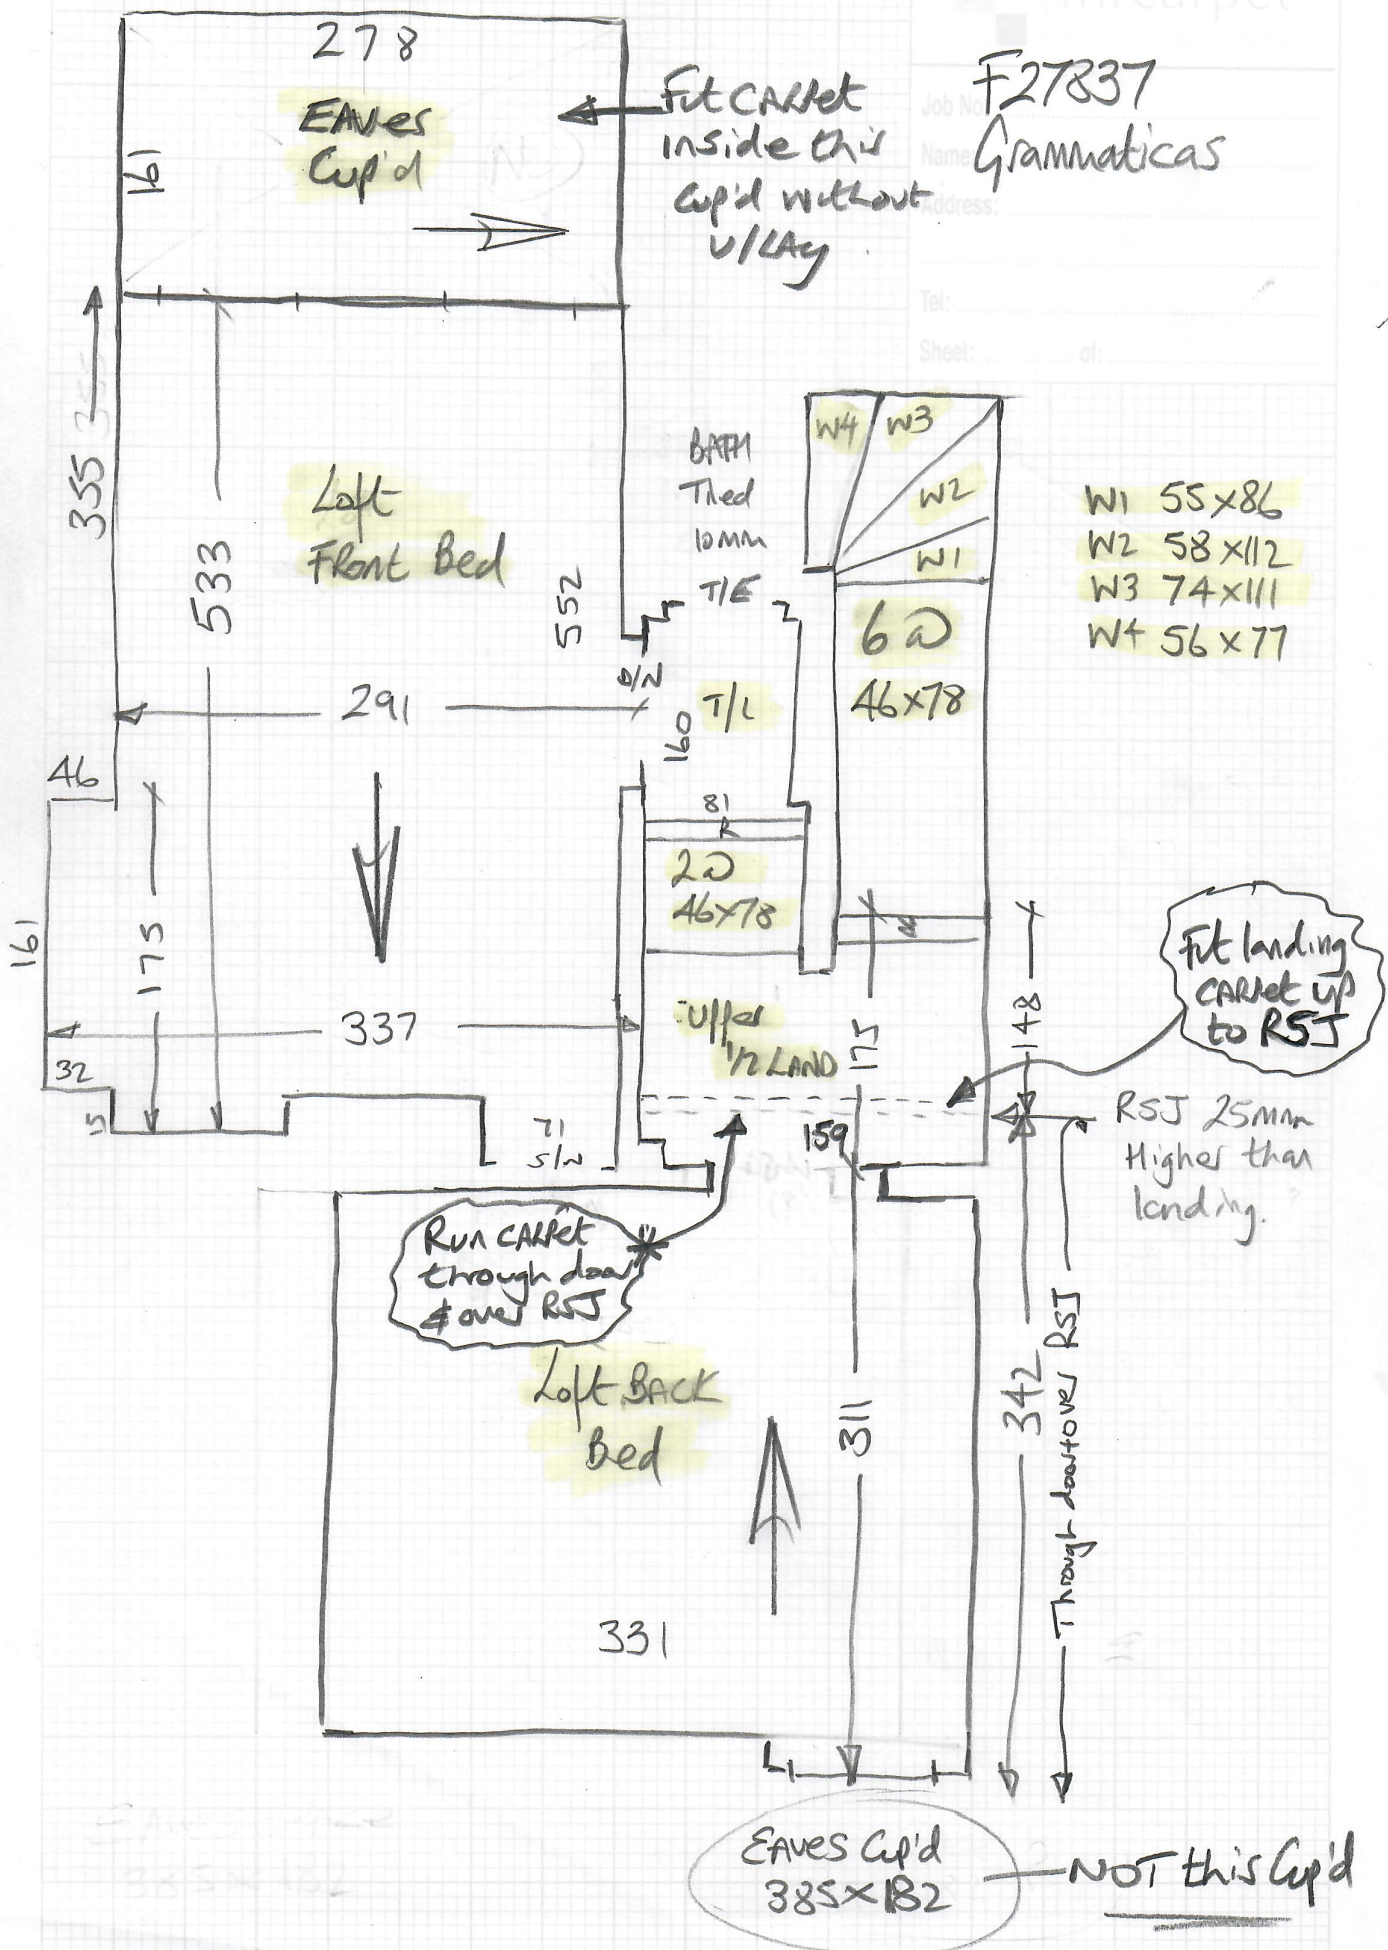 mrcarpet
278
EAVES
Cup'd
161
Fit CARPet
inside this
Cup'd without
U/LAy
F27837
Grammaticas
Job No
Name:
Address:
Tel:
Sheet: of:
355
533
Loft
Front Bed
552
BATH
Tiled
10mm
T/E
W4
W3
W2
W1
W1 55x86
W2 58x112
W3 74x111
W4 56x77
6@
46x78
D/N
T/L
160
291
46
81
R
2@
46x78
R
161
175
337
32
15
71
S/N
Upper
1/2 LAND
175
148
159
Fit landing
CARPet up
to RSJ
RSJ 25mm
Higher than
landing.
Run CARPet
through door
& over RSJ
Loft BACK
Bed
311
342
Through door + over RSJ
331
EAVES Cup'd
385x182
NOT this Cup'd